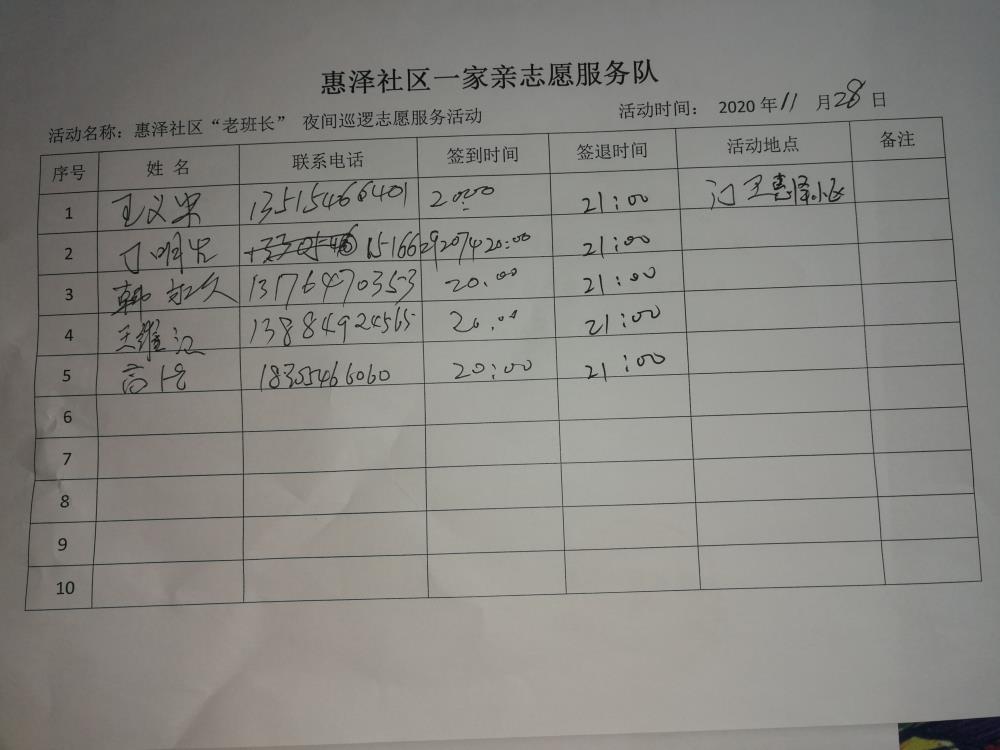 惠泽社区一家亲志愿服务队
活动名称：惠泽社区“老班长” 夜间巡逻志愿服务活动 活动时间： 2020 年 11 月 28 日
序号 姓 名 联系电话 签到时间 签退时间 活动地点 备注
1 王义 13515466401 20:00 21:00 惠泽小区
2 丁明 15166292074 20:00 21:00
3 韩永久 13176470353 20:00 21:00
4 王维江 13884924565 20:00 21:00
5 高 18305466060 20:00 21:00
6
7
8
9
10